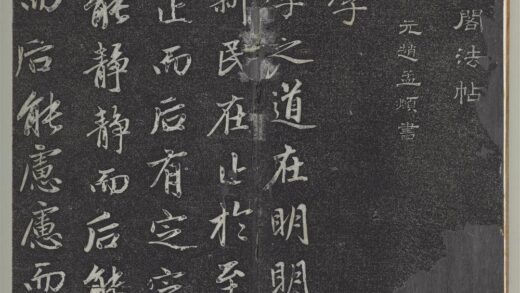 閣法帖
元趙孟頫書
學
學之道在明明
新民在止於至
止而后有定定
能静静而后能
而后能慮慮而